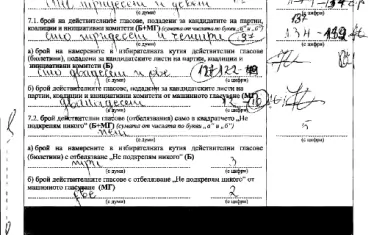 сто тридесет и девет
7.1. брой на действителните гласове, подадени за кандидатите на партии,
коалиции и инициативни комитети (Б+МГ) (сумата от числата по букви „а" и „б")
сто тридесет и четири
(с думи) (с цифри)
а) брой на намерените в избирателната кутия действителни гласове
(бюлетини), подадени за кандидатските листи на партии, коалиции и
инициативни комитети (Б)
сто двадесет и две 122
(с думи) (с цифри)
б) брой на действителните гласове, подадени за кандидатските листи на
партии, коалиции и инициативни комитети от машинното гласуване (МГ)
12
(с думи) (с цифри)
7.2. брой действителни гласове само в квадратчето „Не
подкрепям никого" (Б+МГ) (сумата от числата по букви „а" и „б")
пет 5
(с думи) (с цифри)
а) брой на намерените в избирателната кутия действителни гласове
(бюлетини) с отбелязване „Не подкрепям никого" (Б)
три 3
(с думи) (с цифри)
б) брой действителните гласове с отбелязване „Не подкрепям никого" от
машинното гласуване (МГ)
две 2
(с думи) (с цифри)